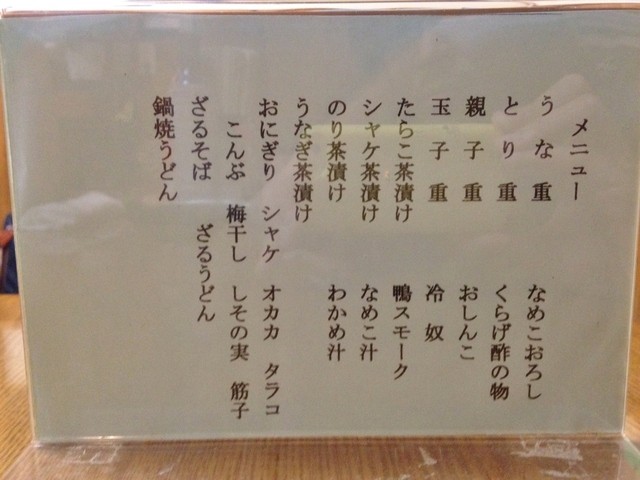 メニュー
うな重　なめこおろし
とり重　くらげ酢の物
親子重　おしんこ
玉子重　冷奴
たらこ茶漬け　鴨スモーク
シャケ茶漬け　なめこ汁
のり茶漬け　わかめ汁
うなぎ茶漬け
おにぎり　シャケ　オカカ　タラコ
こんぶ　梅干し　しその実　筋子
ざるそば　ざるうどん
鍋焼うどん